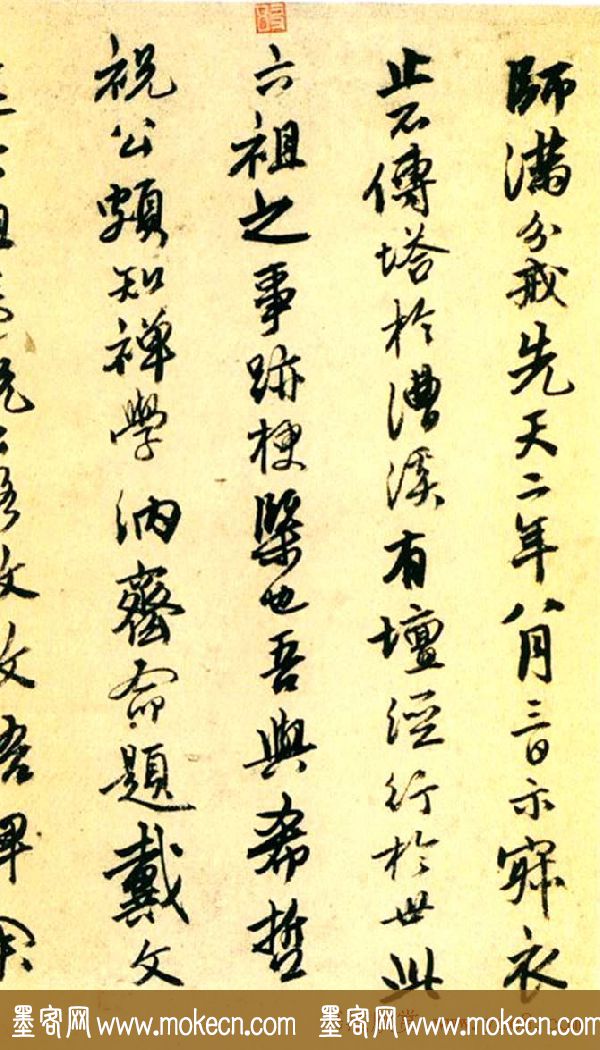 師滿分戒先天二年八月三日示寂衣
止不傳塔於漕溪有壇經行於世此
六祖之事跡梗槩也吾與希哲
祝公頗知禪學訥齋命題戴文
墨客网 www.mokecn.com 墨客网 www.mokecn.com